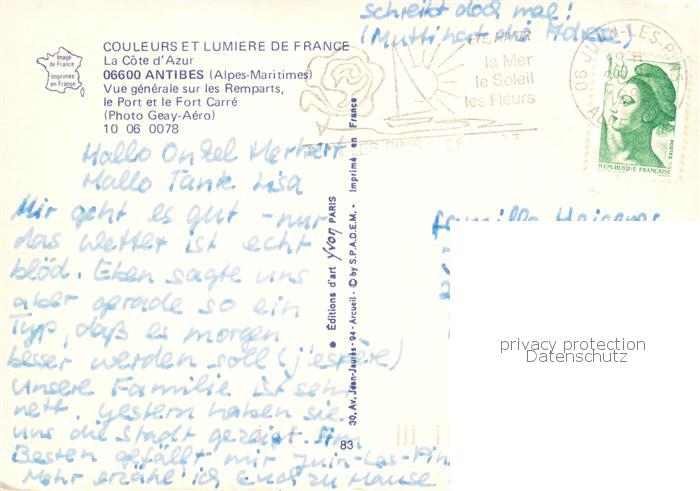 schreibt doch mal!
(Mutti hat die Adresse)
Image
de France
Imprimée
en France
COULEURS ET LUMIERE DE FRANCE
La Côte d'Azur
06600 ANTIBES (Alpes-Maritimes)
Vue générale sur les Remparts,
le Port et le Fort Carré
(Photo Geay-Aéro)
10 06 0078
ETE, HIVER
la Mer
le Soleil
les Fleurs
LES PINS
06 JUAN-LES-PINS
REPUBLIQUE FRANÇAISE
POSTES
Hallo Onkel Herbert
Hallo Tante Lisa
Mir geht es gut - nur
das Wetter ist echt
blöd. Eben sagte uns
aber gerade so ein
Typ, daß es morgen
besser werden soll (j'espère)
Unsere Familie ist sehr
nett, gestern haben sie
uns die Stadt gezeigt. Am
Besten gefällt mir Juin-Les-Pin
Mehr erzähle ich Euch zu Hause
83
Editions d'art Yvon PARIS
30, Av. Jean-Jaurès - 94 - Arcueil - © by S.P.A.D.E.M. - Imprimé en France
Familie
privacy protection
Datenschutz